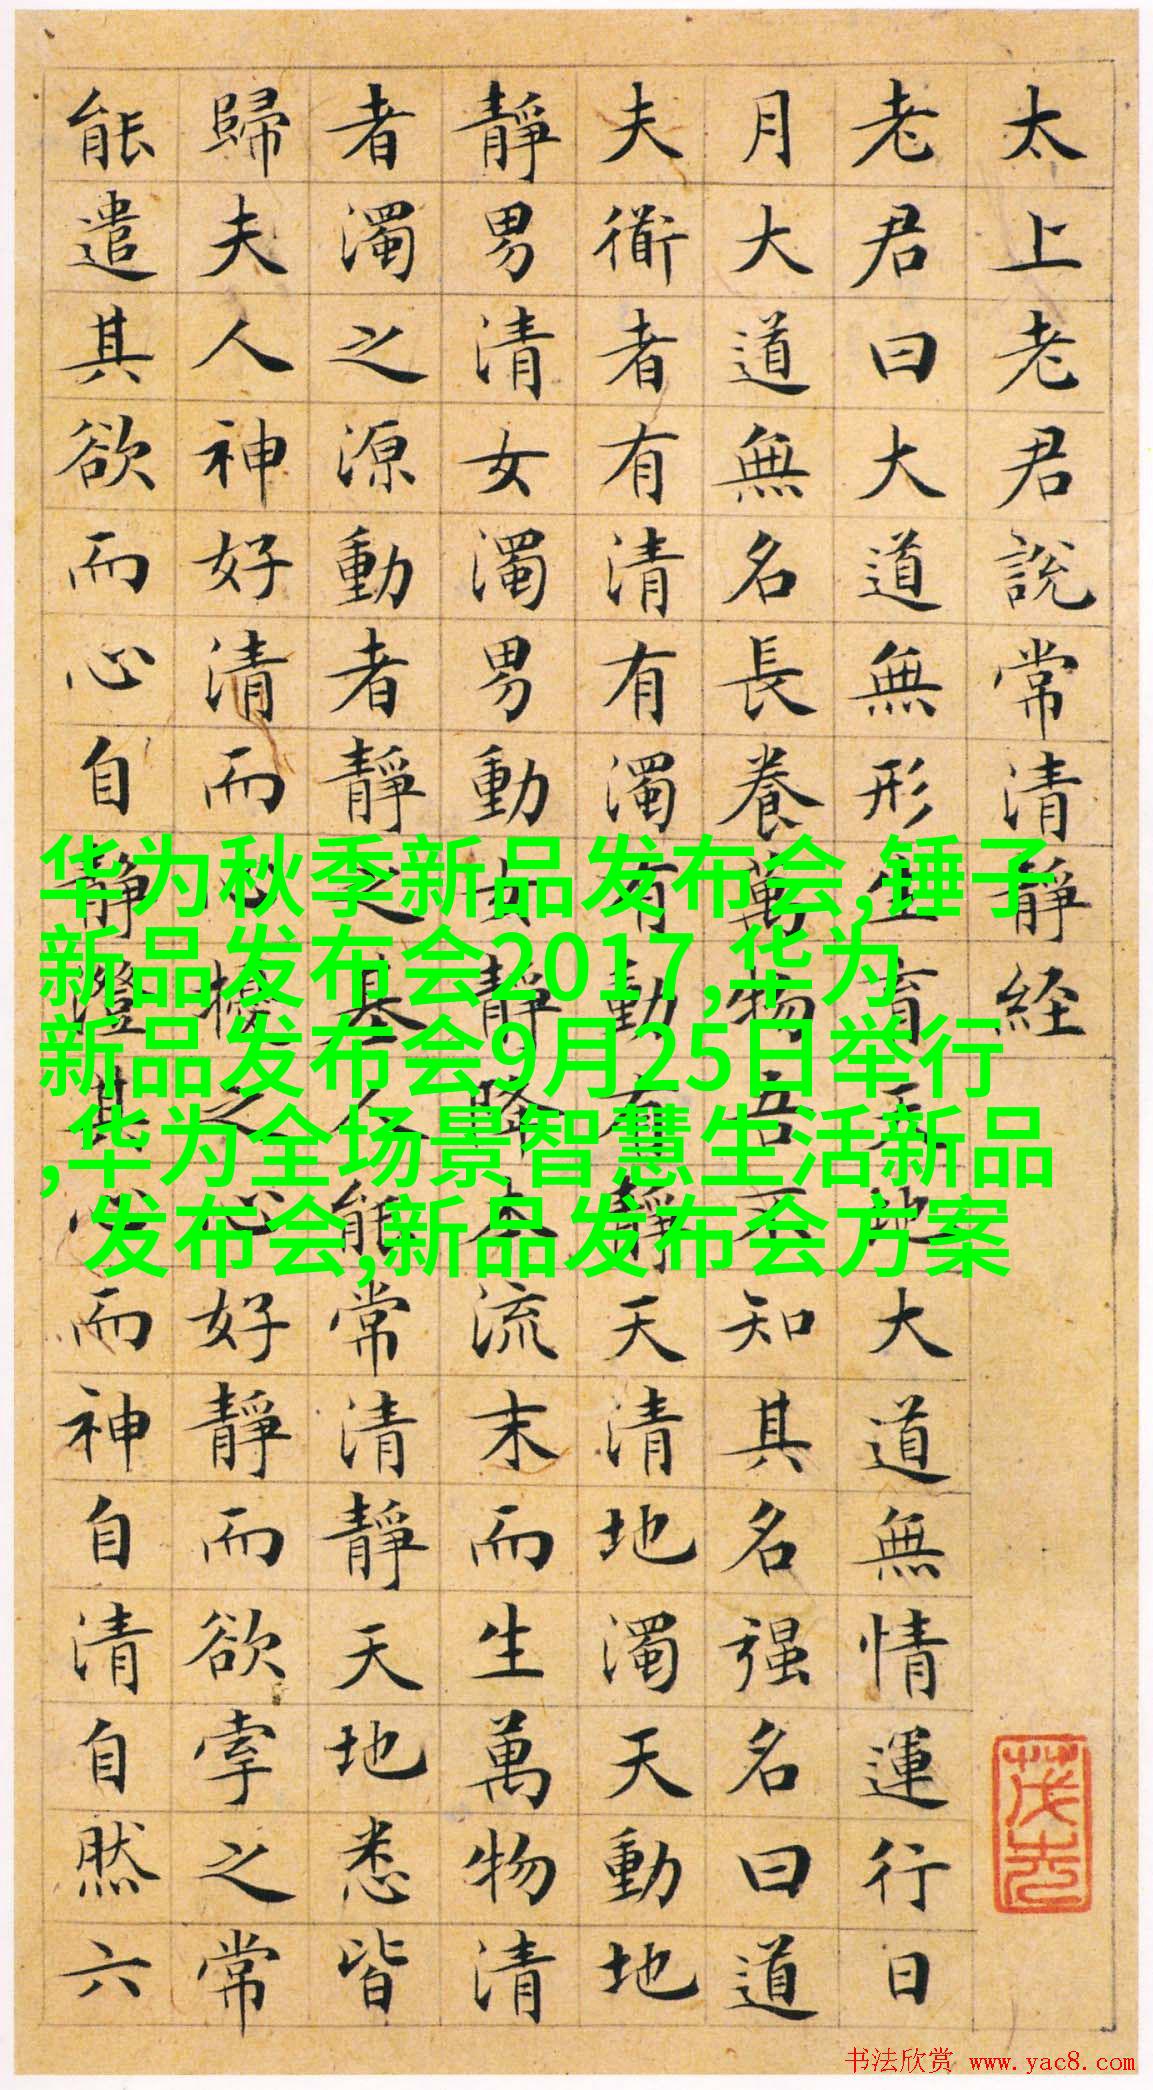 太上老君說常清靜経
老君曰大道無形生育天地大道無情運行日
月大道無名長養萬物吾不知其名强名曰道
夫衜者有清有濁有動有靜天清地濁天動地
靜男清女濁男動女靜降本流末而生萬物清
者濁之源動者靜之基人能常清靜天地悉皆
歸夫人神好清而心擾之心好靜而欲牽之常
能遣其欲而心自靜澄其心而神自清自然六
华为秋季新品发布会,锤子
新品发布会2017,华为
新品发布会9月25日举行
,华为全场景智慧生活新品
发布会,新品发布会方案
书法欣赏 www.yac8.com